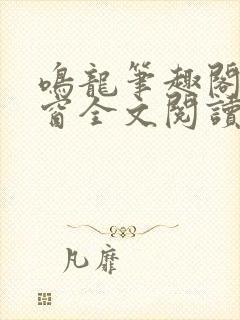 鳴龍筆趣閣
窗全文閱讀
凡靡